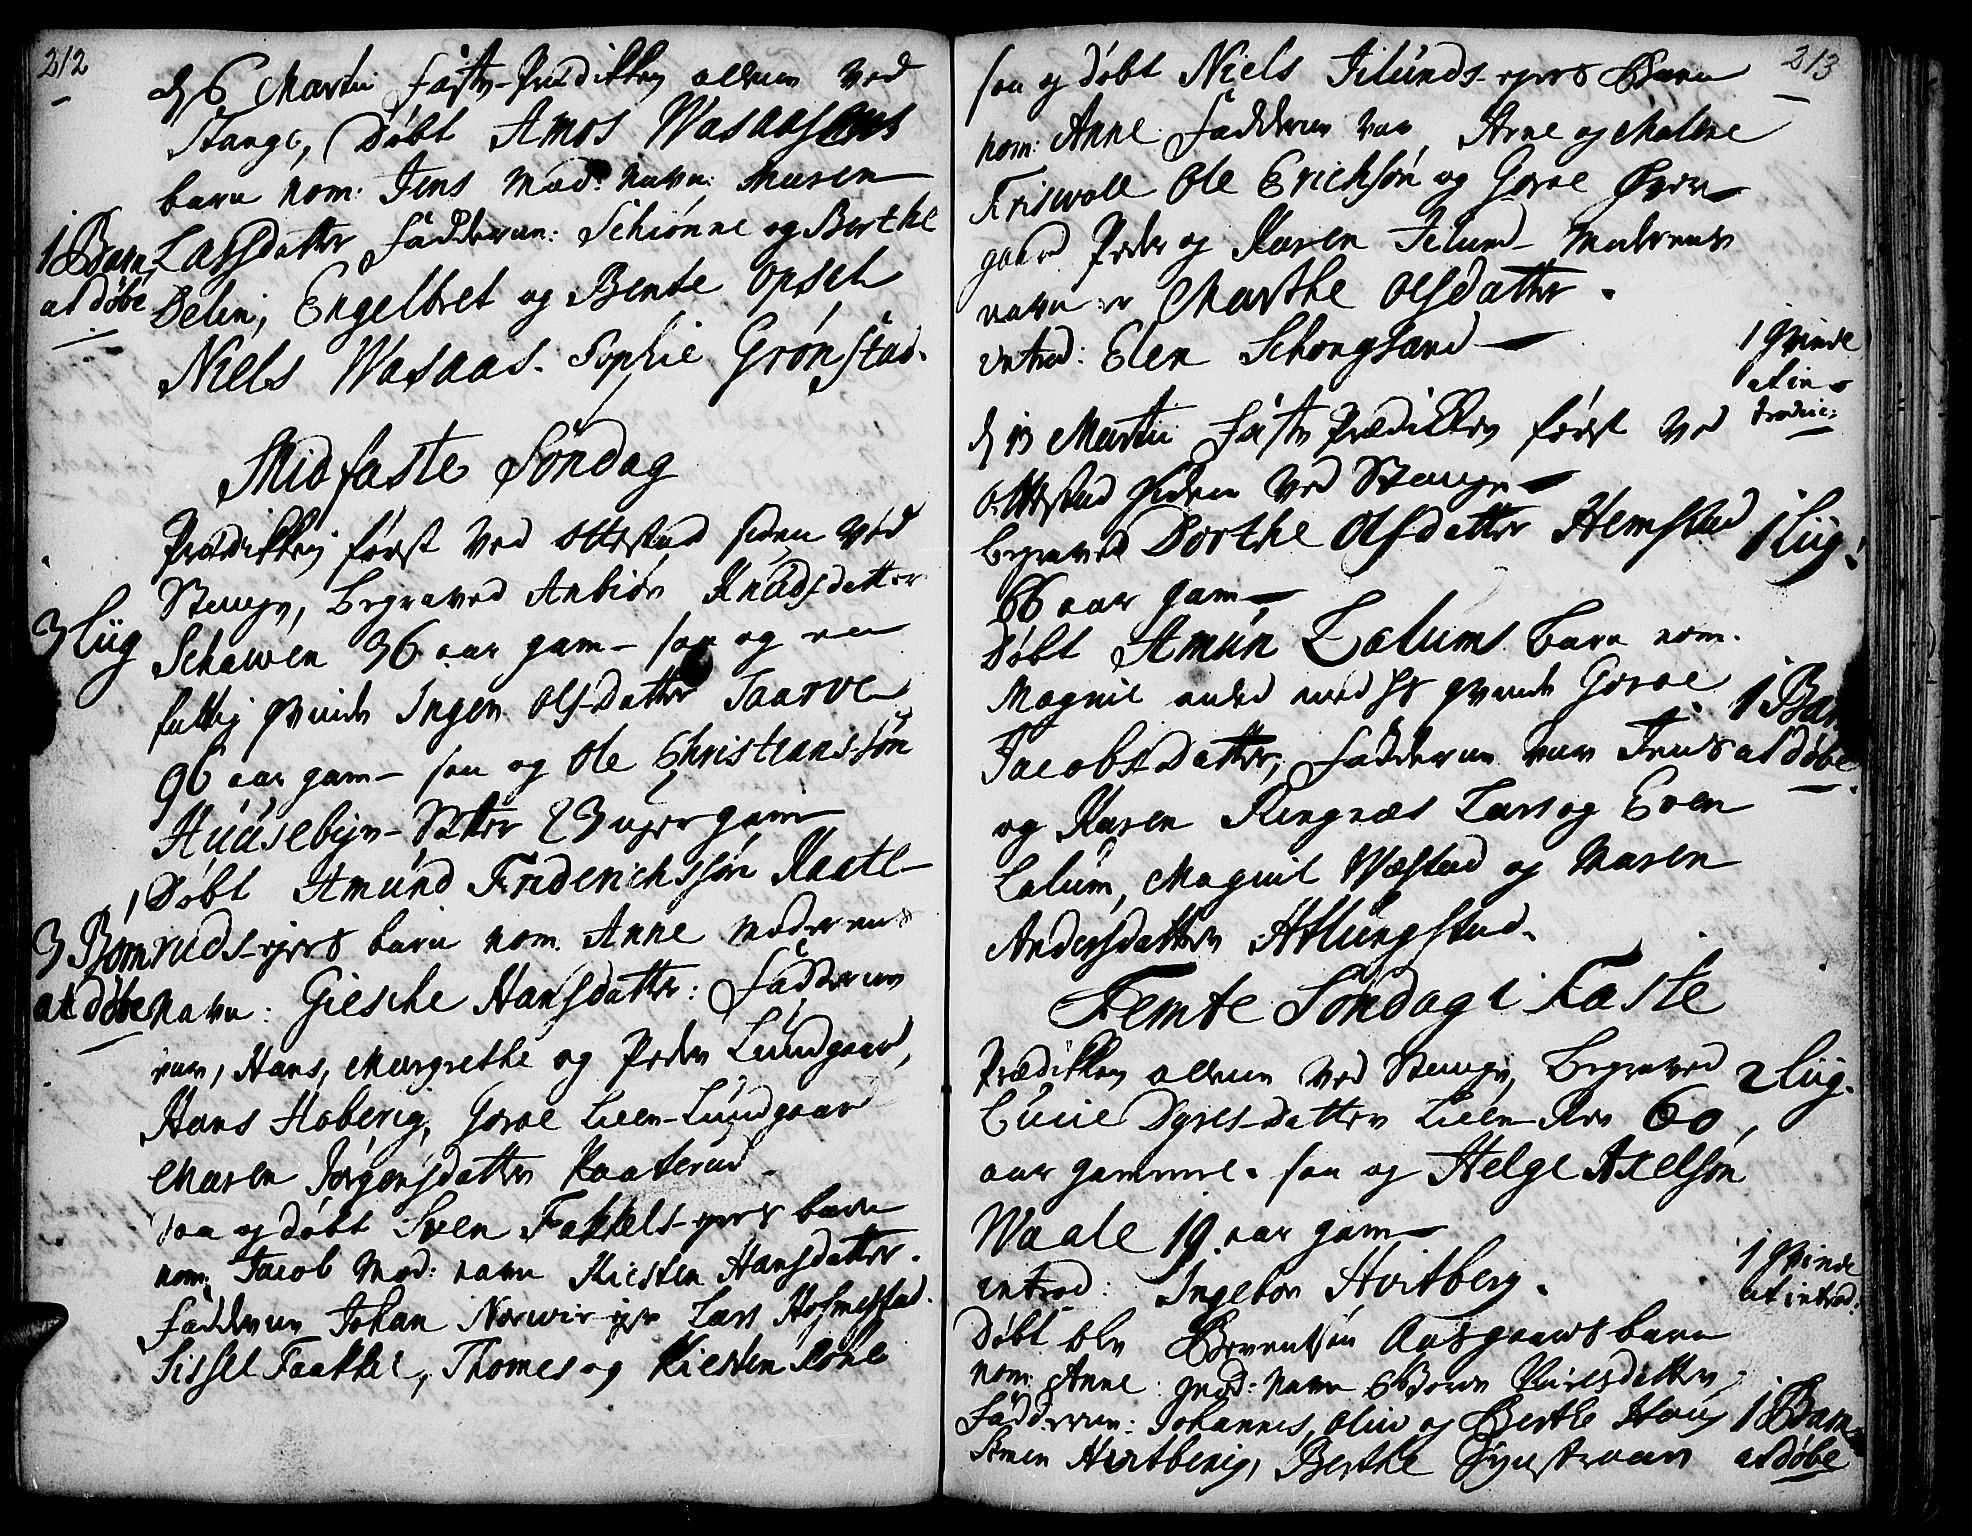 212
d 6 Martii faste-Prædikken alleene ved
Stange, Døbt Amos Wasaasens
barn nom: Jens Mod: navn: Maren
1 Barn
at døbe
Larsdatter fadderne: Schiønne og Berthe
Delin, Engelbret og Bente Opsal
Niels Wasaas. Sophie Grønstad.
Midfaste Søndag
Prædikken først ved Ottestad siden ved
Stange, Begraved Anbiør Knudsdatter
3 Liig
Schawen 36 aar gam- saa og en
fattig qvinde Ingen Olsdatter Taarve
96 aar gam- saa og Ole Christianssøn
Huusebye-Sætter 23 uger gam
Døbt Amund Friderichssøn Kaate-
3 Børn
at døbe
ruds-ejers barn nom. Anne moderens
navn: Giesche Hansdatter: Fadderne
var, Hans, Margrethe og Peder Lundgaar,
Hans Hoberig, Goroe Lien-Lundgaar
Maren Jørgensdatter Kaaterud.
saa og døbt Sven Fakkels-ejers barn
nom: Jacob Mod: navn Kiesten Hansdatter.
Fadderne Johan Norwir-ejer Lars Hofmestad.
Sissel Faakkel, Thomes og Kiesten Rohl
213
saa og døbt Niels Jilunds-ejers Barn
nom: Anne: Fadderne var Arne og Malene
Friswall Ole Erichsøn og Goroe Øvre-
gaard Peder og Karen Jilund Moderens
navn er Marthe Olsdatter.
introd: Elen Schougsand
1 Qvinde
at in-
troduc:
d 13 Martii Faste Prædikken først ved
Ottestad siden ved Stange
begraved Dorthe Olsdatter Hemstad
1 Liig.
66 aar gam
Døbt Amun Lalums barn nom.
Magnil avled med Hs qvinde Goroe
1 Barn
at døbe
Jacobsdatter, Fadderne var Jens
og Karen Ringnæs Lars og Even
Lalum, Magnil Wæstad og Maren
Andersdatter Atlungstad.
Femte Søndag i Faste
Prædikken alleene ved Stange, Begraved
2 Liig.
Lucie Dyresdatter Lien-Rw 60
aar gammel. saa og Helge Axelsøn
Waale 19 aar gam
introd: Ingebor Hvitberg.
1 Qvinde
at introd:
Døbt blev Berentsøn Aasgaards barn
nom: Anne: Mod: navn Goroe Povelsdatter
1 Barn
at døbe
Fadderne: Johannes, Oliv og Berthe Haug
Amen Hvitberig, Berthe Gynstroan